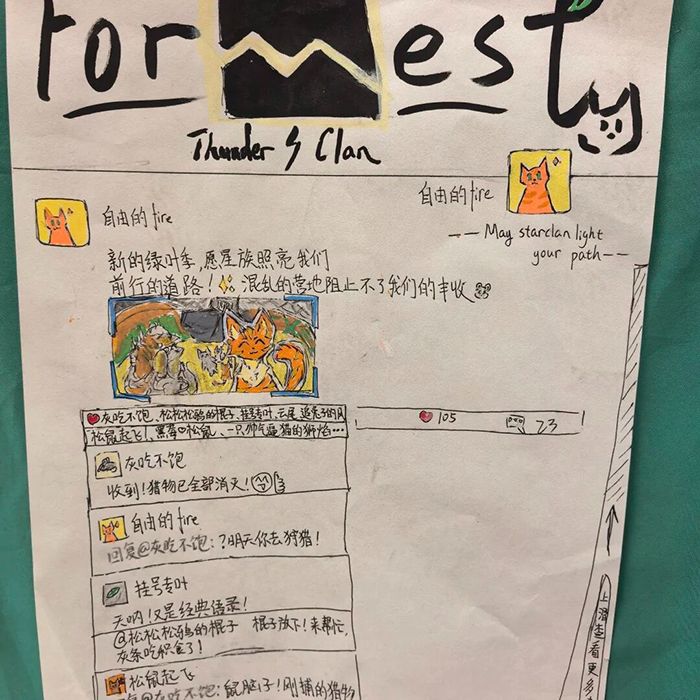 Formest
Thunder Clan
自由的fire
——May starclan light
your path——
自由的fire
新的绿叶季,愿星族照亮我们
前行的道路!混乱的营地阻止不了我们的丰收
灰吃不饱、松松松鸦的棍子、挂号专叶、云尾 追兔子的风
松鼠起飞!、黑莓♡松鼠、一只帅气逼猫的狮焰…
105
73
灰吃不饱
收到!猎物已全部消灭!
自由的fire
回复@灰吃不饱:?明天你去狩猎!
挂号专叶
天呐!又是经典语录!
@松松松鸦的棍子 棍子放下!来帮忙,
灰条吃积食了!
松鼠起飞
回复@灰吃不饱:鼠脑子!刚捕的猎物
上滑查看更多